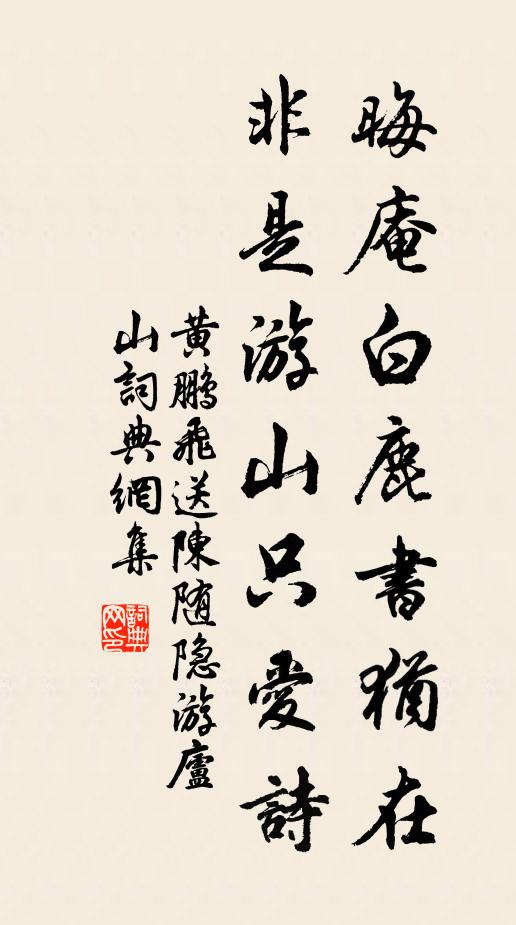 晦庵白鹿書猶在
非是游山只愛詩
黃鵬飛送陳随隐游廬
山詞典網集
詞典网印